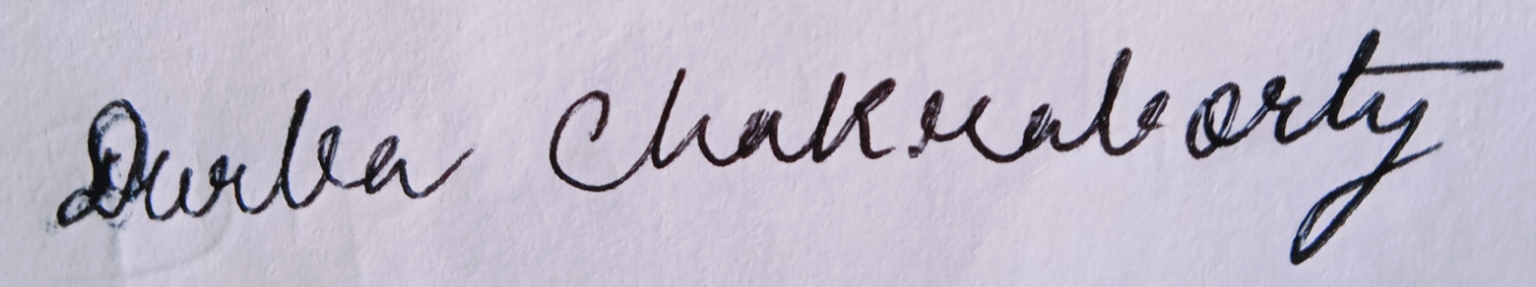 Durba Chakraborty